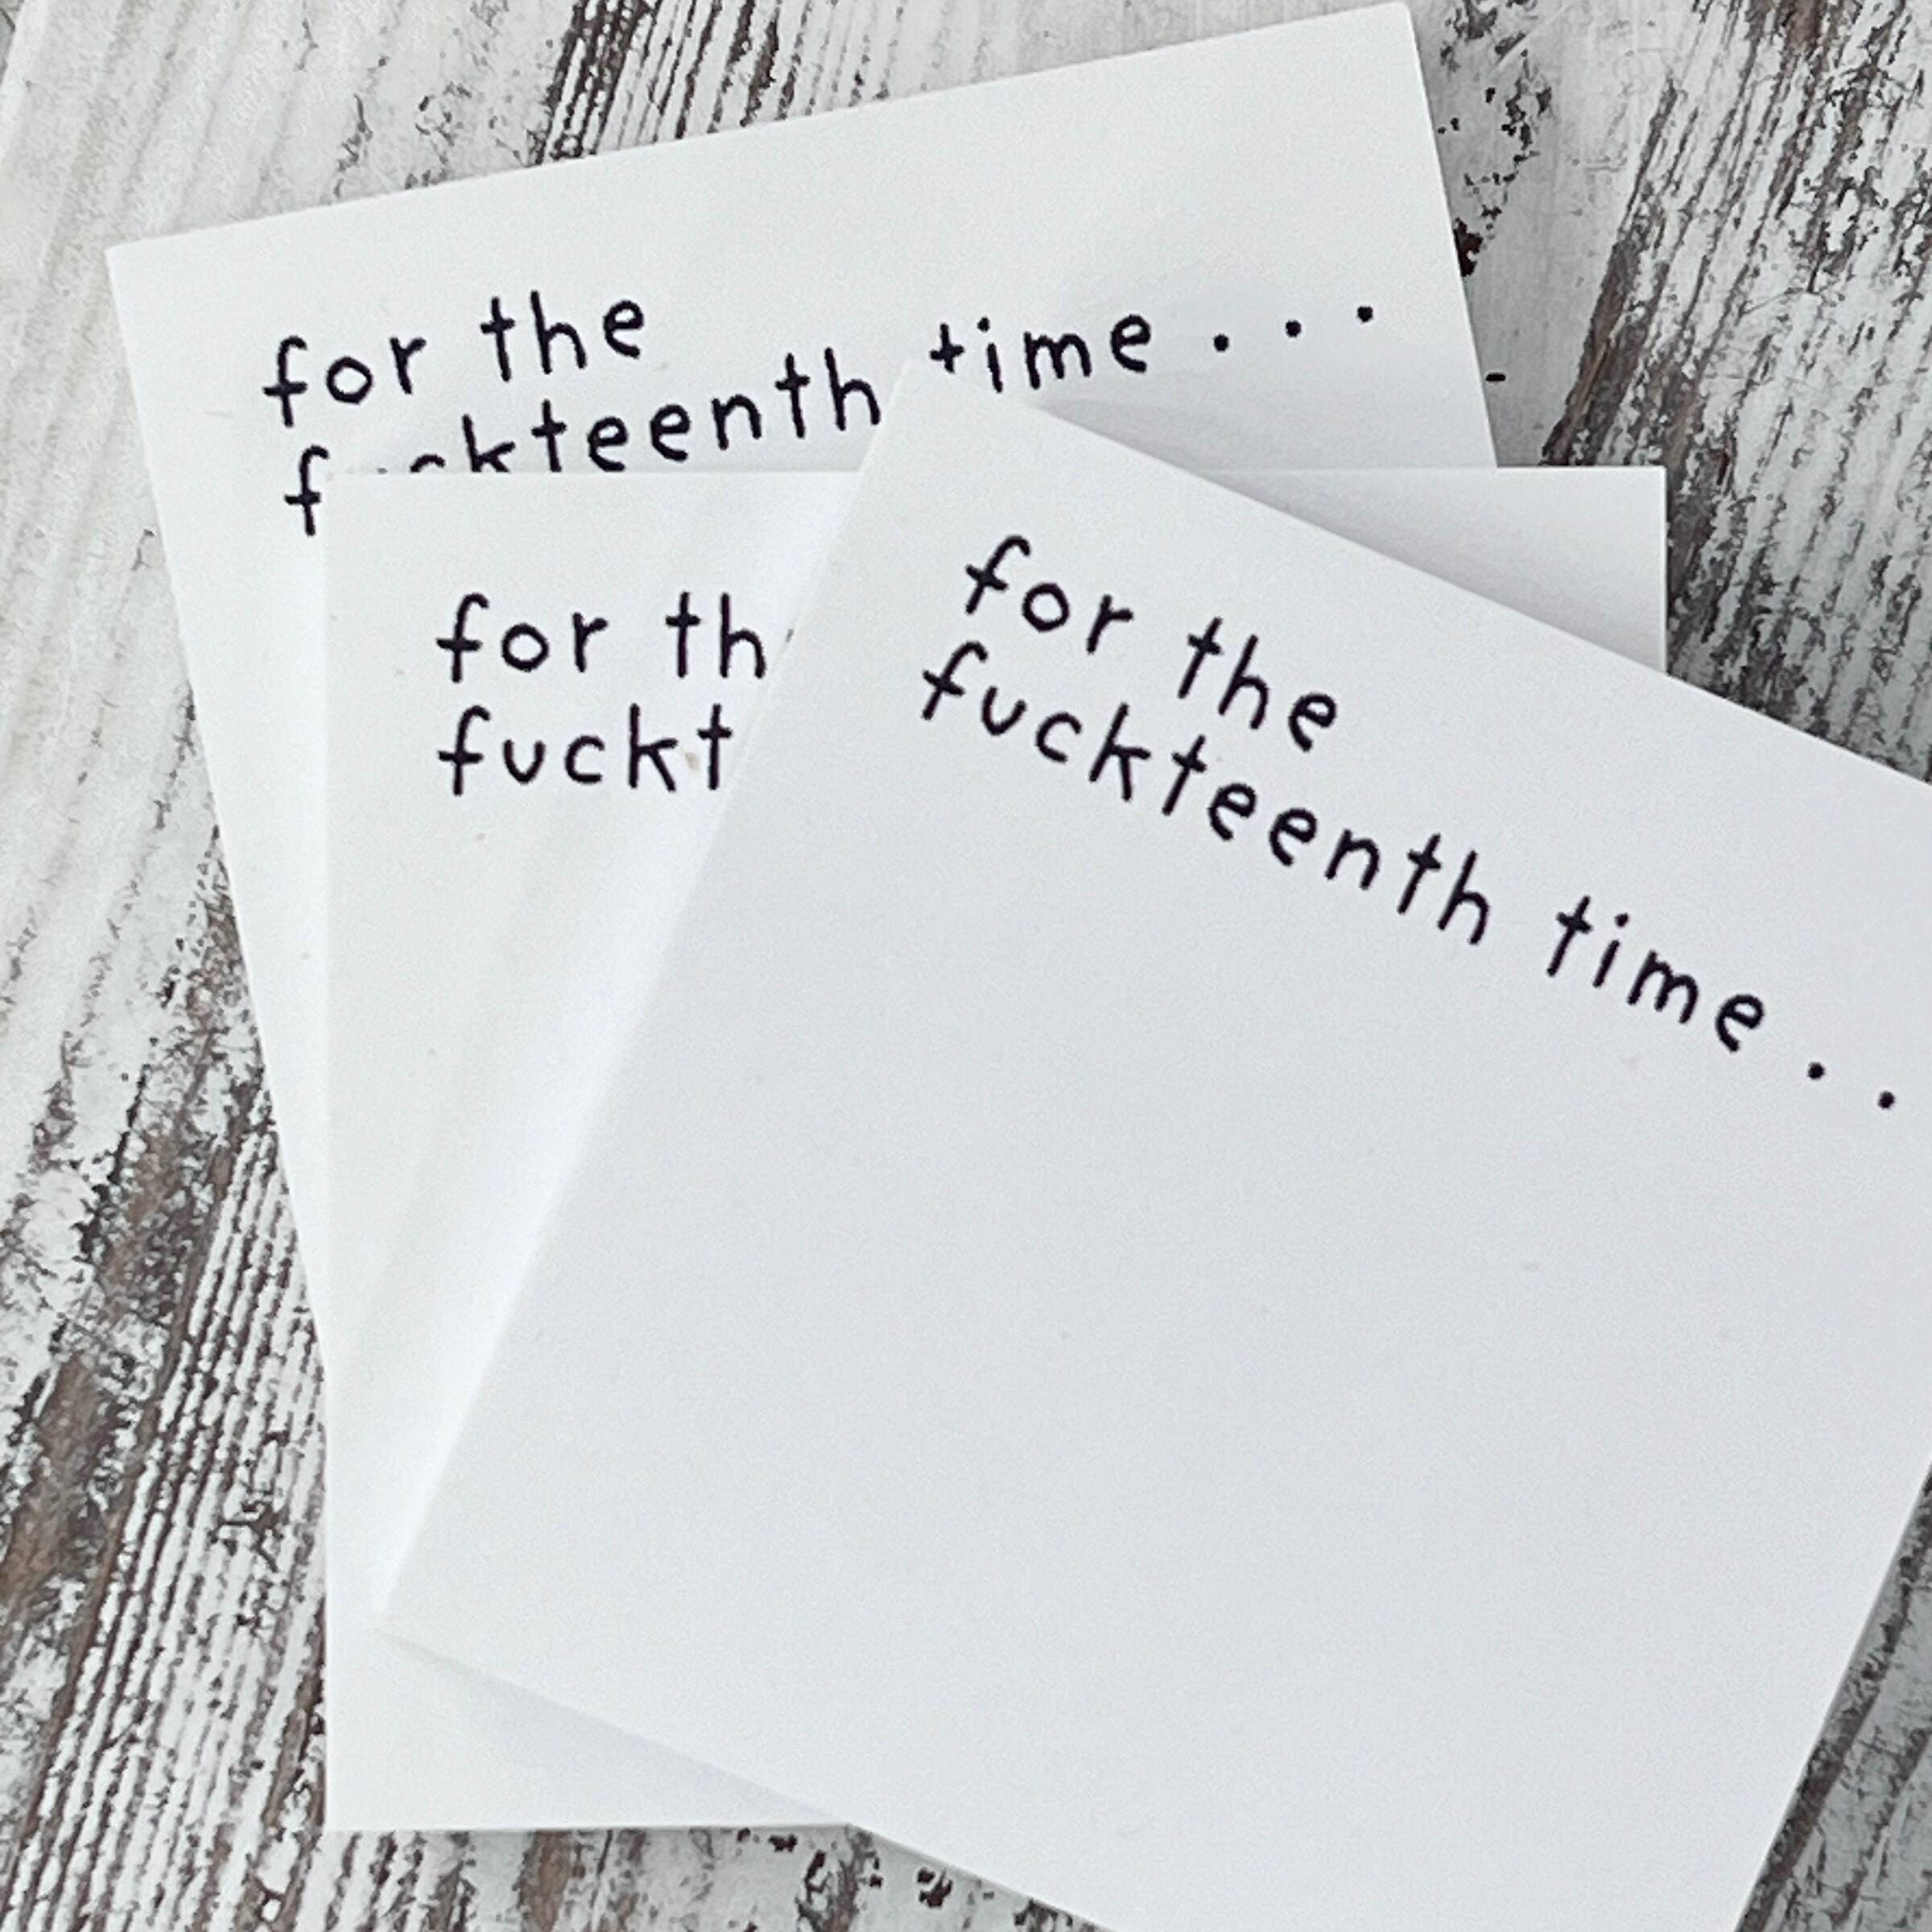 for the
fuckteenth time...
for th
fuckt
for the
fuckteenth time..